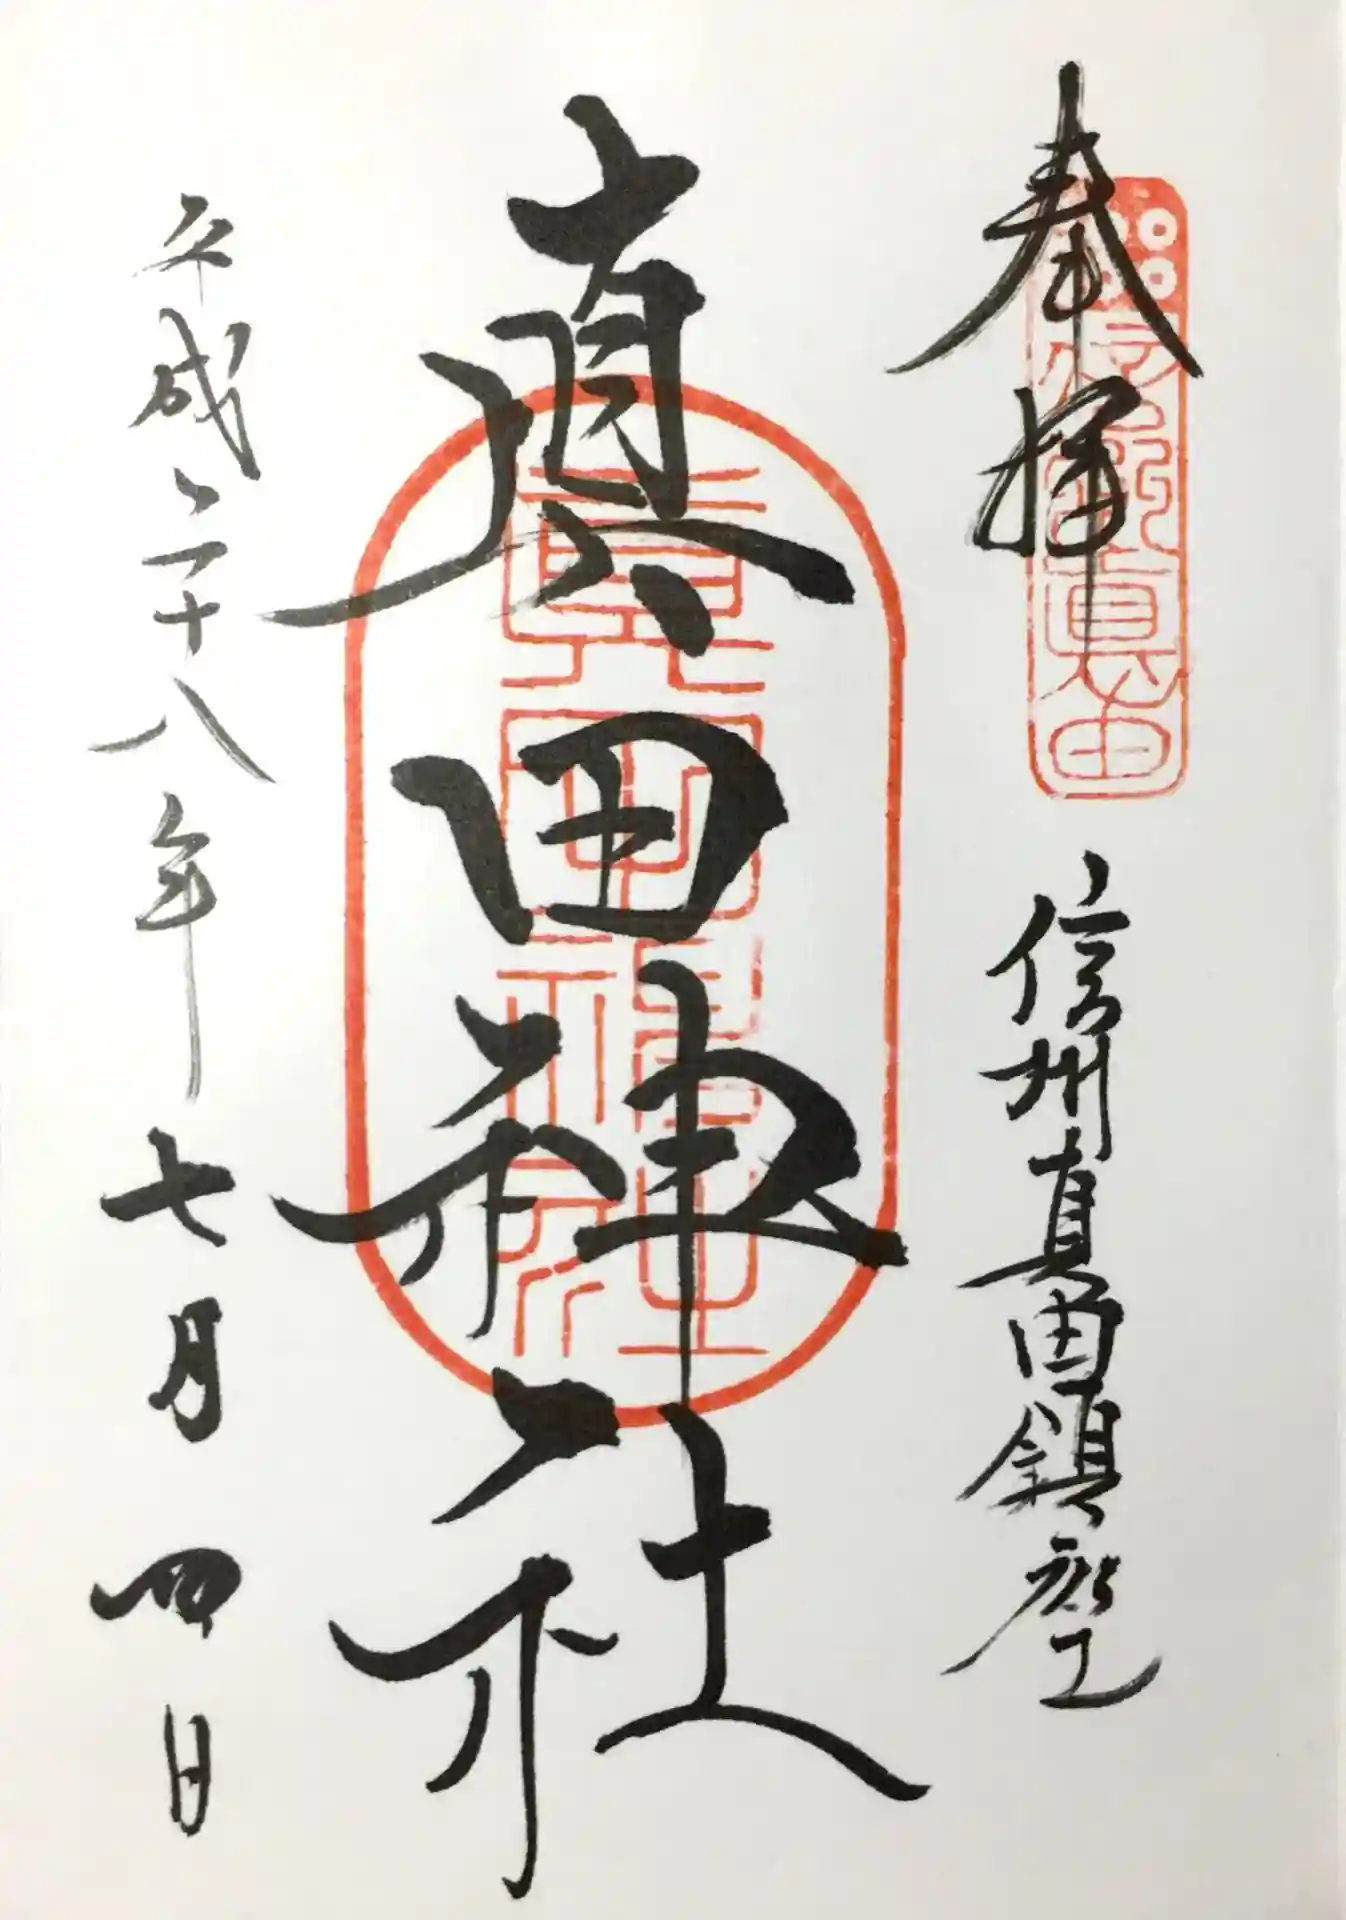 奉拝
信州真田鎮座
真田神社
平成二十八年七月四日
真田神社